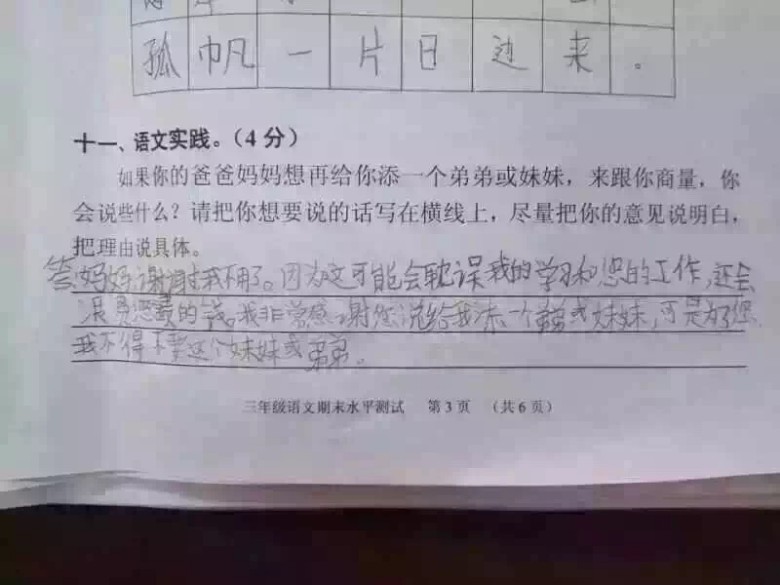 孤帆一片日边来。
十一、语文实践。(4分)
如果你的爸爸妈妈想再给你添一个弟弟或妹妹,来跟你商量,你
会说些什么?请把你想要说的话写在横线上,尽量把你的意见说明白,
把理由说具体。
答妈妈谢谢我不用了。因为这可能会耽误我的学习和您的工作,还会
浪费您的钱。我非常感谢您说给我添一个弟弟或妹妹,可是为了您
我不得不要这个妹妹或弟弟。
三年级语文期末水平测试 第3页 (共6页)